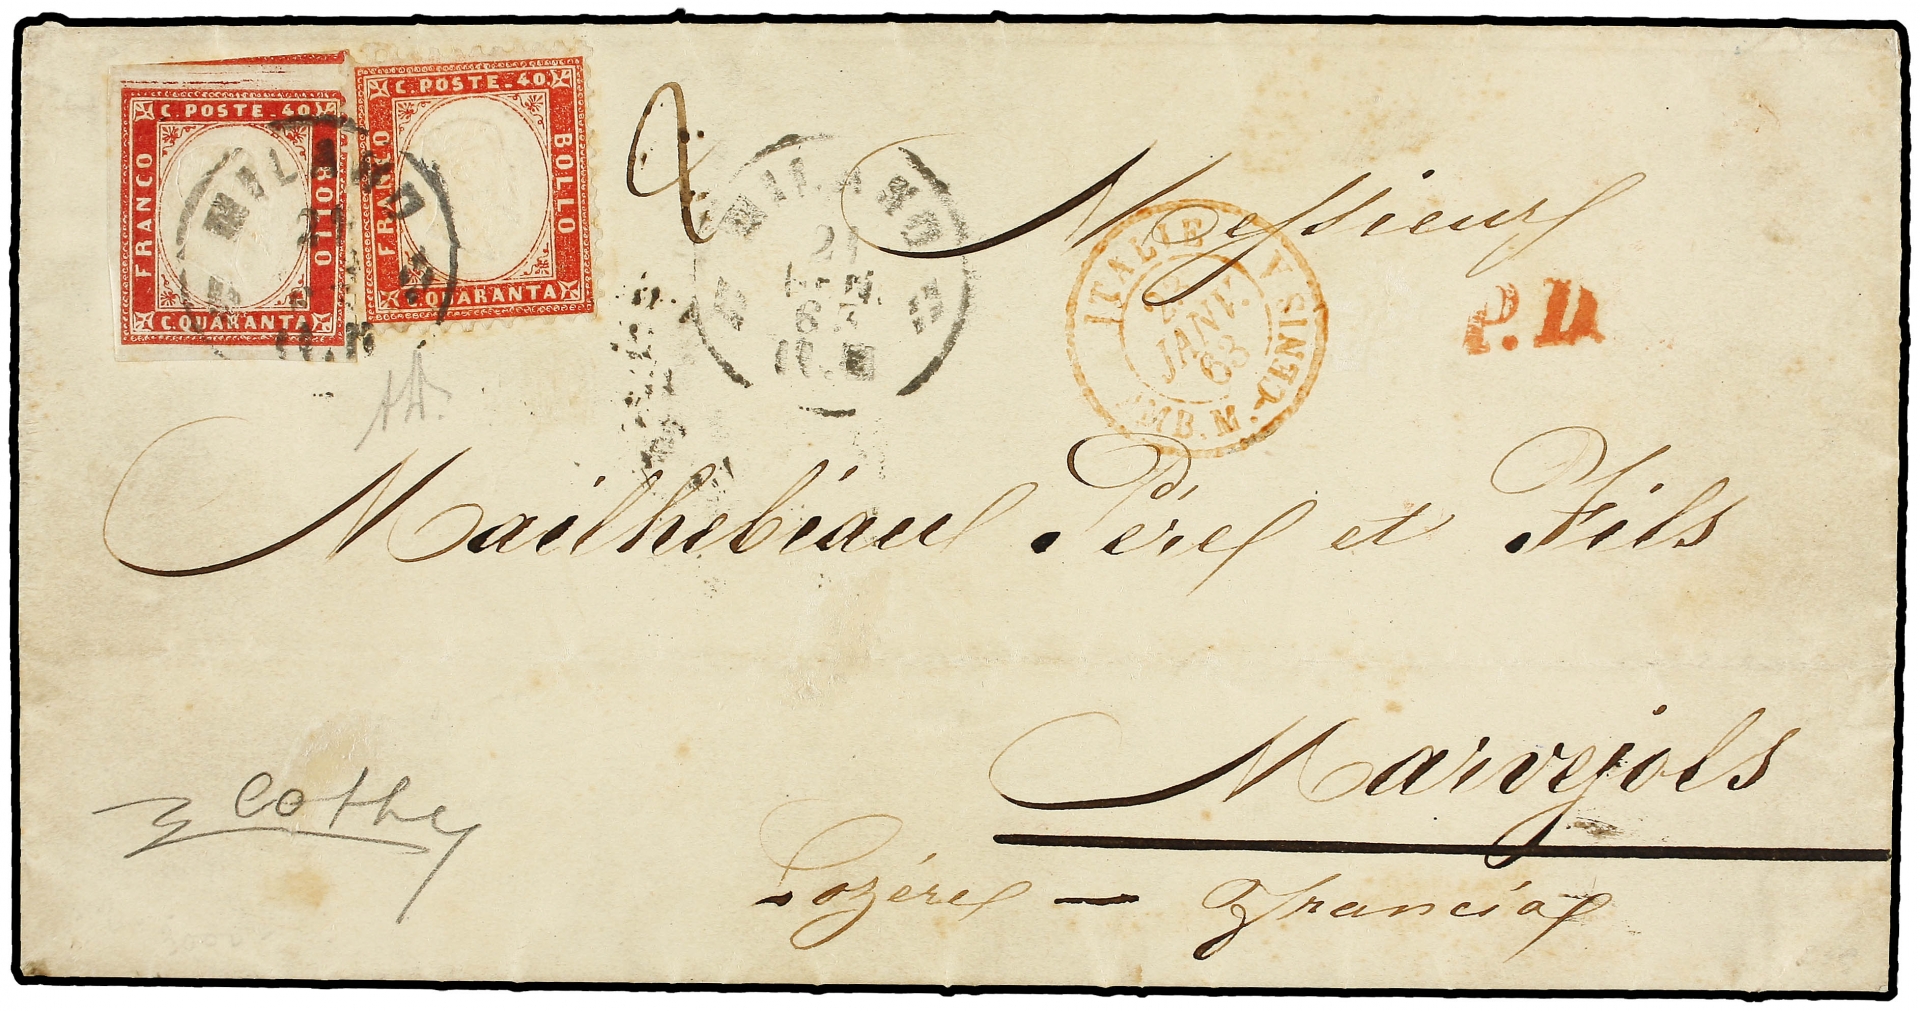 C. POSTE. 40
FRANCO
BOLLO
C. QUARANTA
C. POSTE. 40
FRANCO
BOLLO
C. QUARANTA
MILANO
21
2
MILANO
21
GEN.
63
ITALIE
22
JANV.
63
AMB. M.-CENIS
P.D.
Messieurs
Mailhebiau Père et Fils
Marvejols
Lozère — Francia